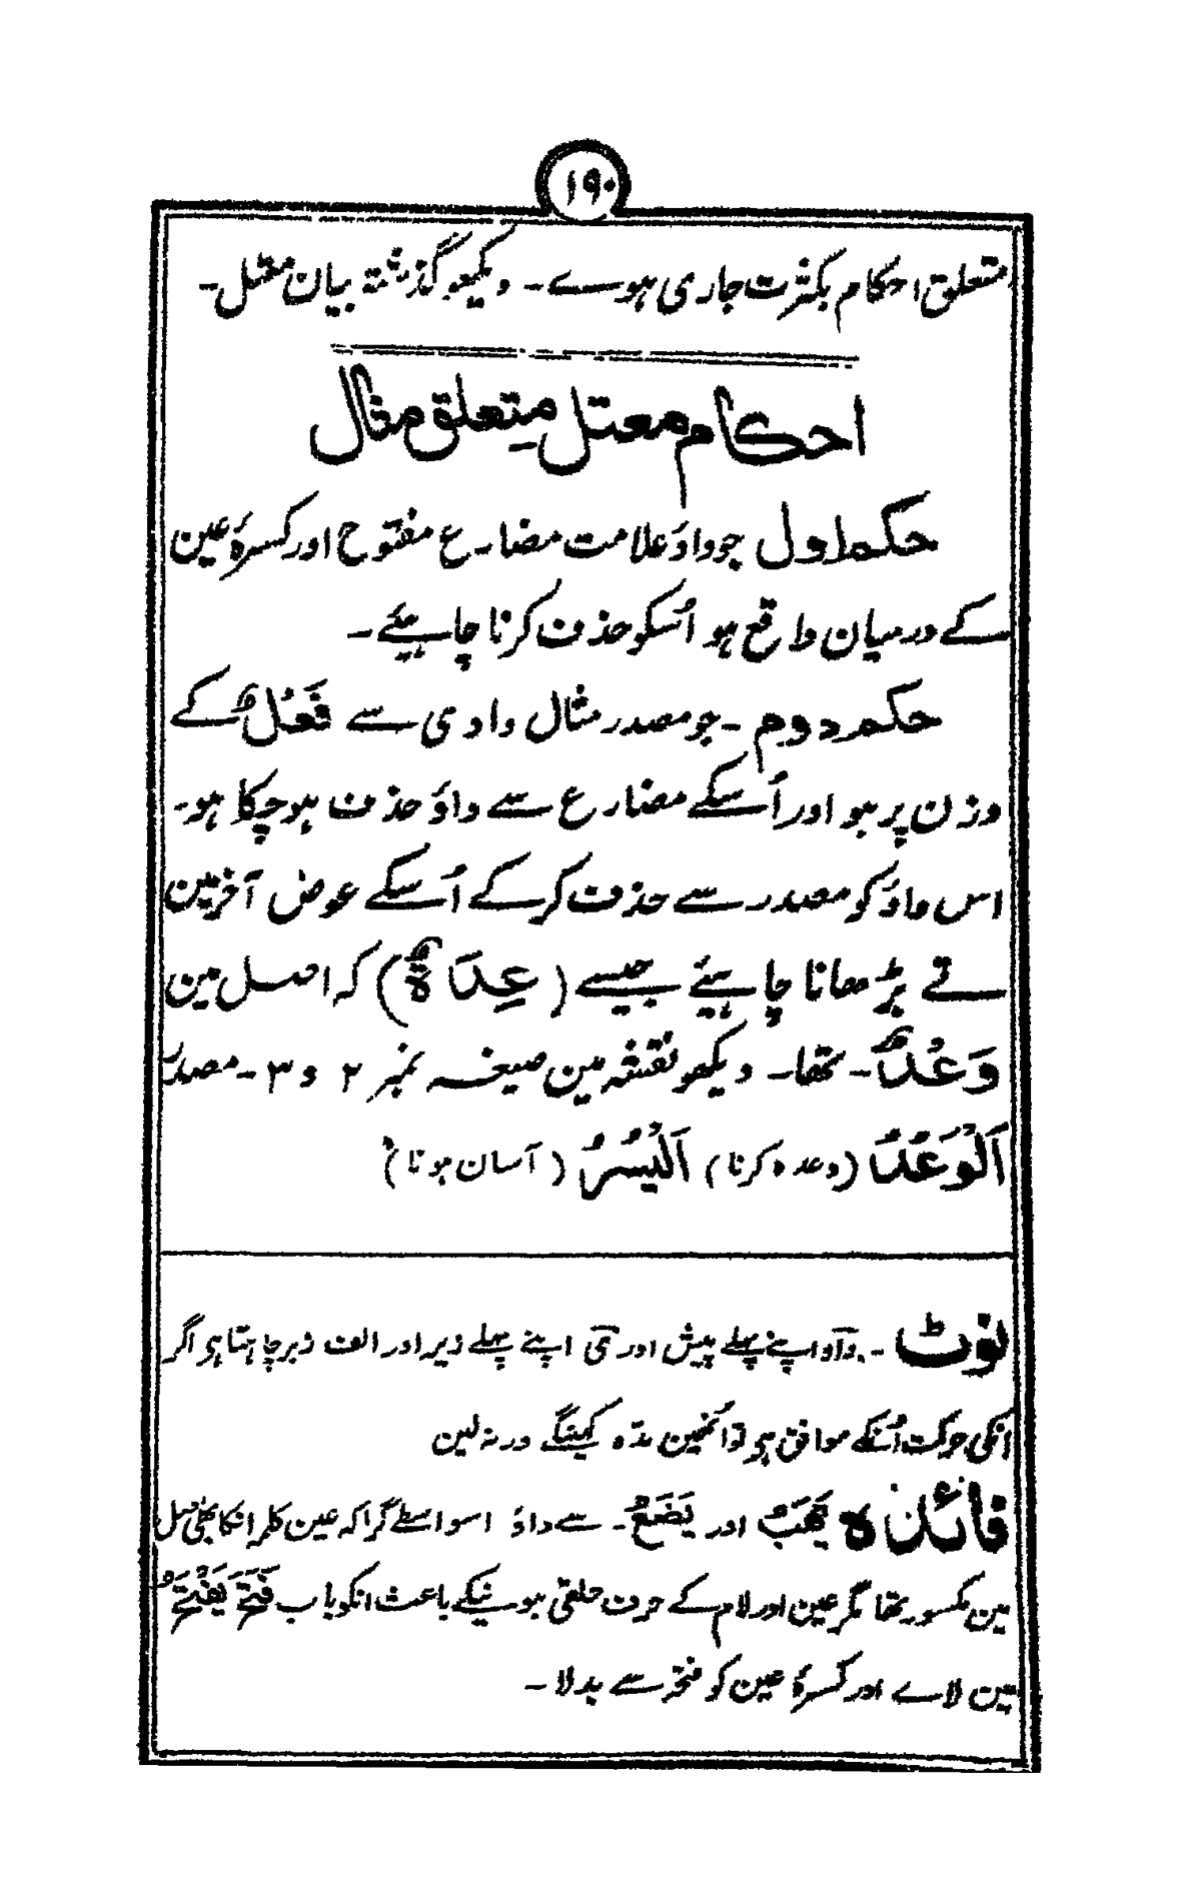 ۱۹۰
متعلق احکام بکثرت جاری ہوے۔ دیکھو گذشتہ بیان معتل۔
احکام معتل متعلق مثال
حکم اول جو واؤ علامت مضارع مفتوح اور کسرۂ عین
کے درمیان واقع ہو اُسکو حذف کرنا چاہیئے۔
حکم دوم ۔ جو مصدر مثال وادی سے فَعْلٌ کے
وزن پر ہو اور اُسکے مضارع سے واؤ حذف ہوچکا ہو۔
اس واؤ کو مصدر سے حذف کرکے اُسکے عوض آخرمین
تے بڑھانا چاہیئے جیسے (عِدَۃٌ) کہ اصل مین
وَعْدٌ۔ تھا۔ دیکھو نقشہ مین صیغہ نمبر ۲ و ۳۔ مصدر
اَلْوَعْدُ (وعدہ کرنا) اَلْیُسْرُ (آسان ہونا)
نوٹ ۔ واؤ اپنے پہلے پیش اور ی اپنے پہلے زیر اور الف زبر چاہتا ہو اگر
انکی حرکت اُنکے موافق ہو تو اُنھین مدہ کہینگے ورنہ لین
فائدہ یَہَبُ اور یَضَعُ۔ سے واؤ اسواسطے گرا کہ عین کلمہ انکا بھی اصل
مین مکسور تھا مگر عین اور لام کے حرف حلقی ہونیکے باعث انکو باب فَتَحَ یَفْتَحُ
مین لاے اور کسرۂ عین کو فتحہ سے بدلا ۔